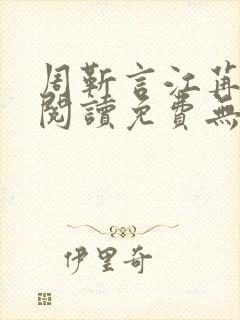 周靳言江苒
閱讀免費無
伊里奇